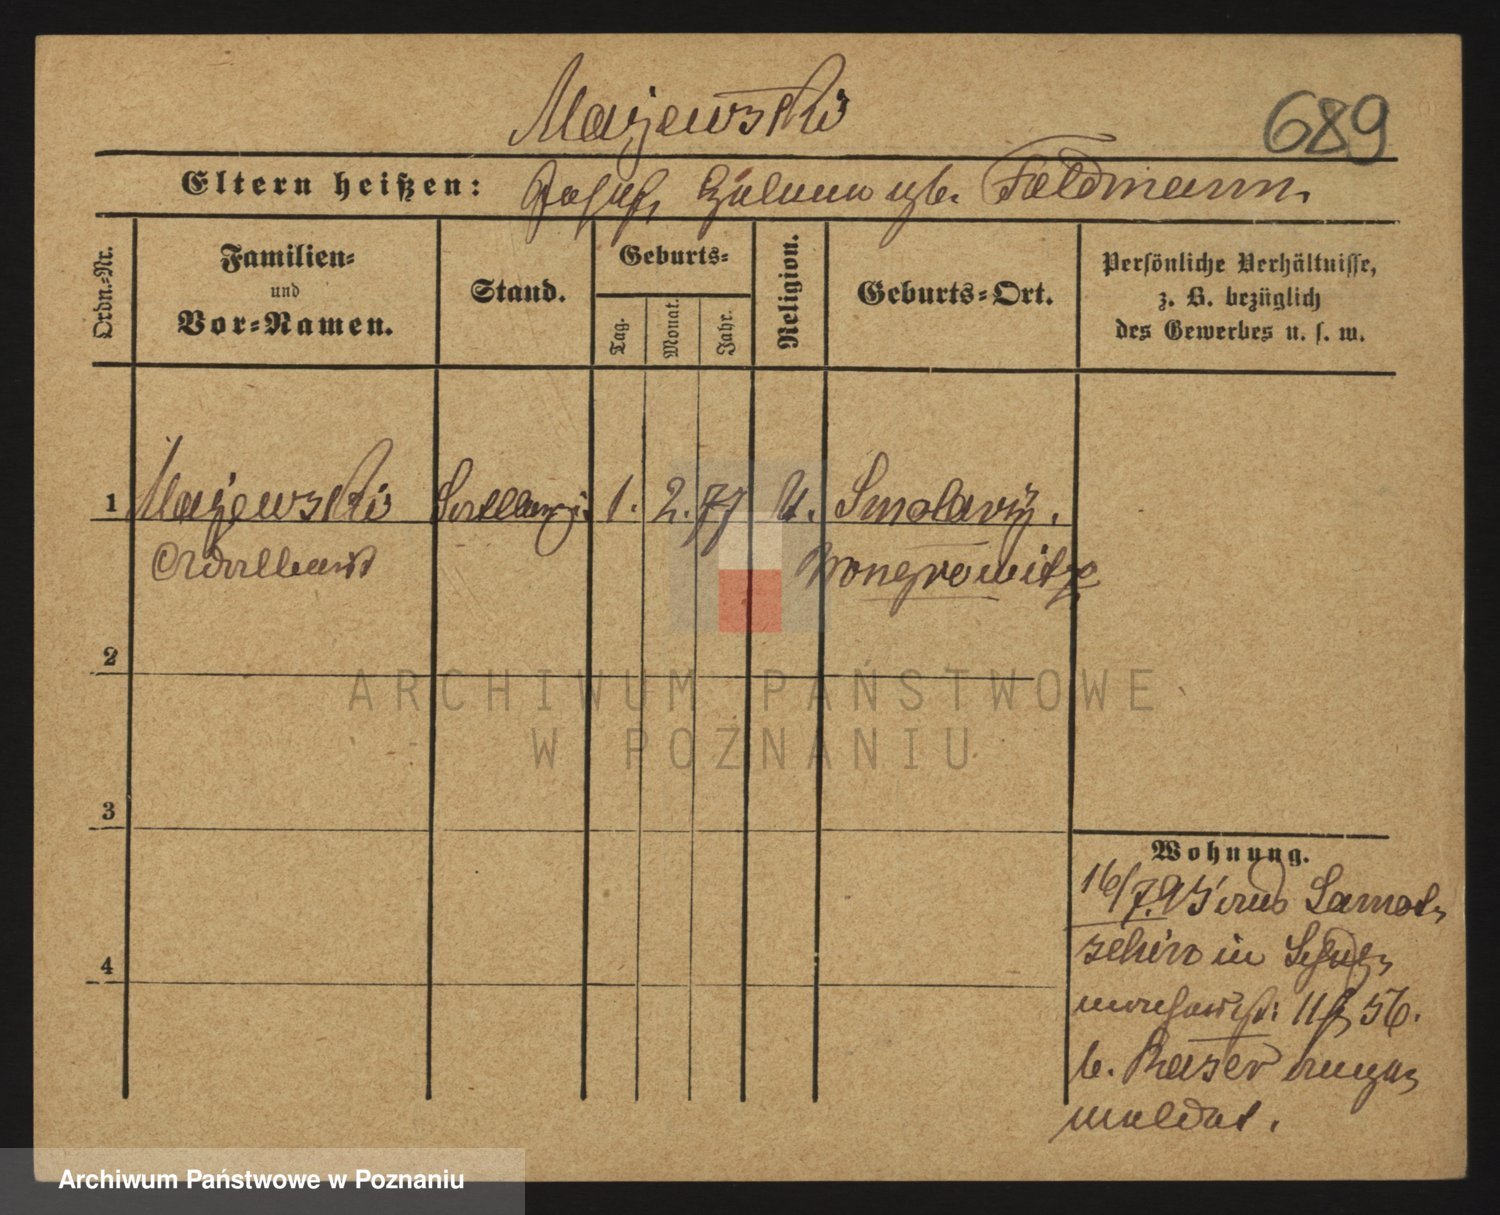 Majewski
689
Eltern heißen: Josef, Helene geb. Feldmann.
Ordn.-Nr.
Familien-
und
Vor-Namen.
Stand.
Geburts-
Tag.
Monat.
Jahr.
Religion.
Geburts-Ort.
Persönliche Verhältnisse,
z. B. bezüglich
des Gewerbes u. s. w.
1 Majewski 1. 2. 77 k. Smolary.
Adalbert Wongrowitz
2
3
4
Wohnung.
16/7.95 aus Samot-
schin in
11 56.
b. Kaiser ange-
meldet.
ARCHIWUM PAŃSTWOWE
W POZNANIU
Archiwum Państwowe w Poznaniu